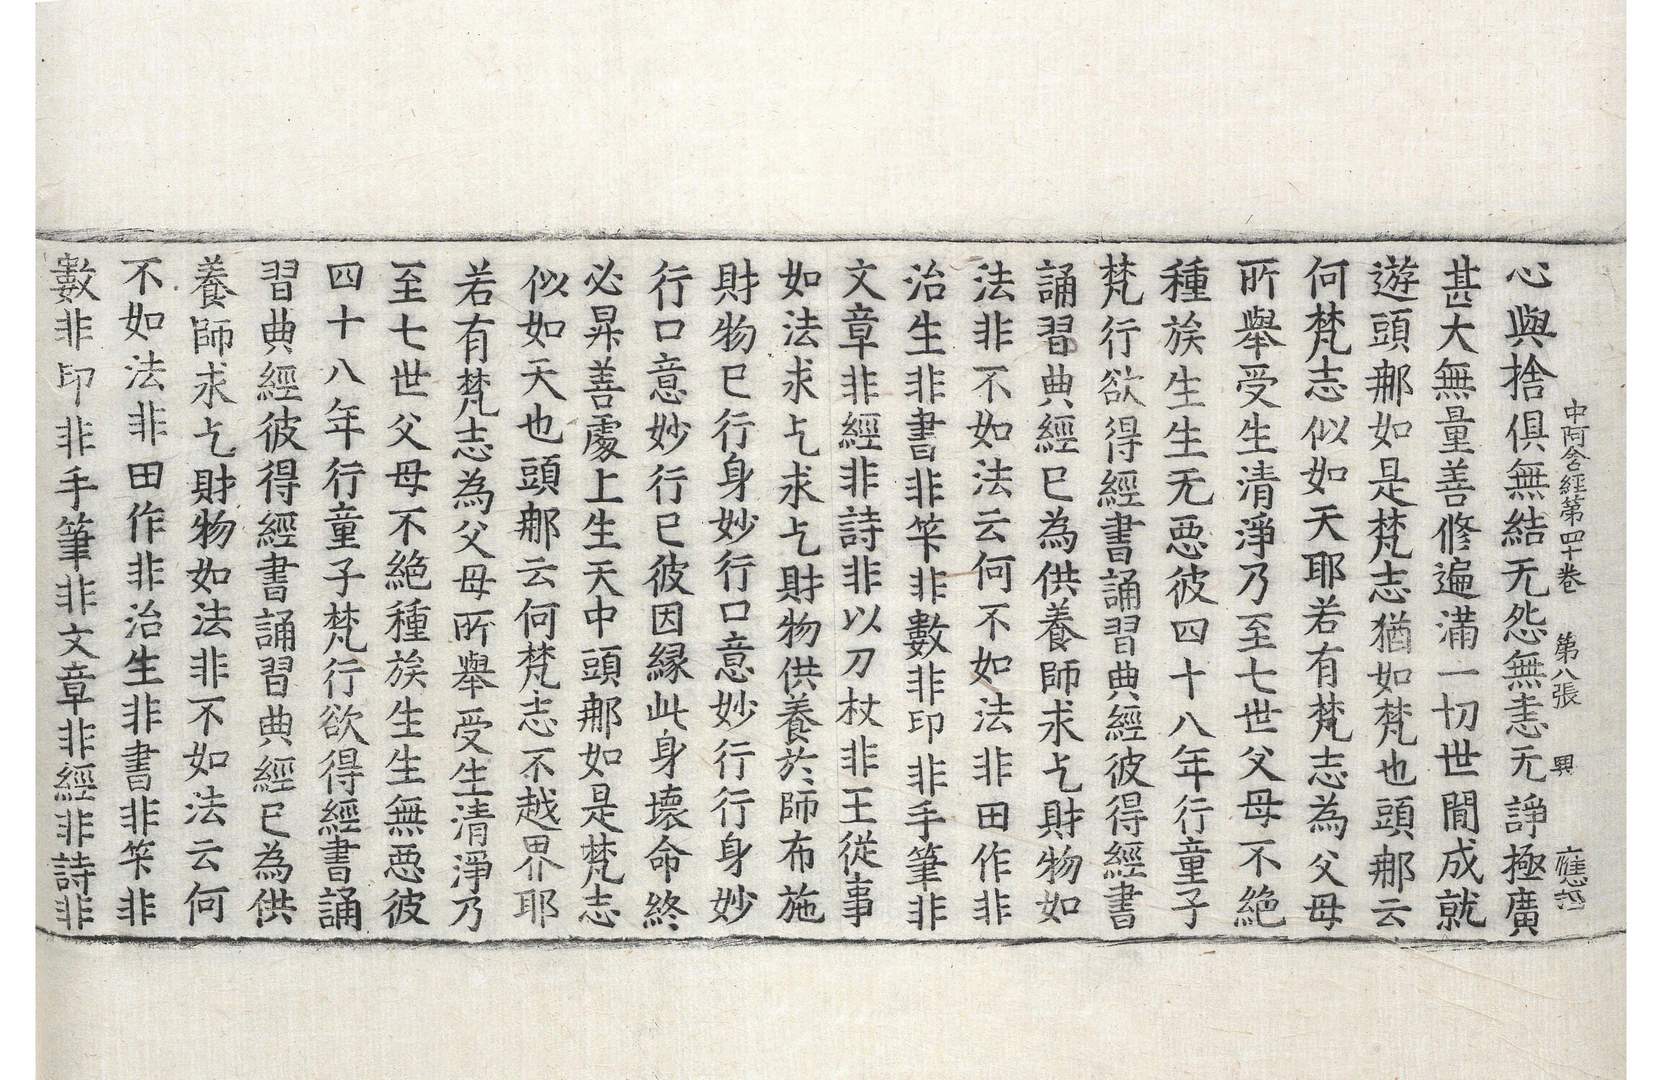 中阿含經第四十卷　第八張　興
心與捨俱無結无怨無恚无諍極廣
甚大無量善修遍滿一切世間成就
遊頭那如是梵志猶如梵也頭那云
何梵志似如天耶若有梵志為父母
所舉受生清淨乃至七世父母不絕
種族生生无惡彼四十八年行童子
梵行欲得經書誦習典經彼得經書
誦習典經已為供養師求乞財物如
法非不如法云何不如法非田作非
治生非書非筞非數非印非手筆非
文章非經非詩非以刀杖非王從事
如法求乞求乞財物供養於師布施
財物已行身妙行口意妙行行身妙
行口意妙行已彼因緣此身壞命終
必昇善處上生天中頭那如是梵志
似如天也頭那云何梵志不越界耶
若有梵志為父母所舉受生清淨乃
至七世父母不絕種族生生無惡彼
四十八年行童子梵行欲得經書誦
習典經彼得經書誦習典經已為供
養師求乞財物如法非不如法云何
不如法非田作非治生非書非筞非
數非印非手筆非文章非經非詩非